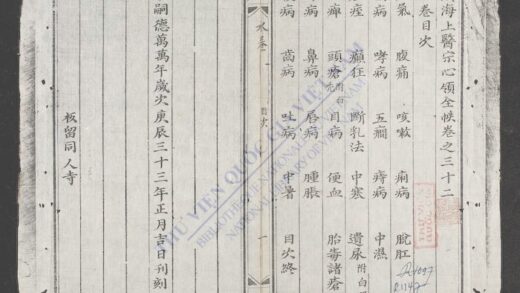 海上醫宗心領全帙卷之三十二
卷目次
氣 腹痛 咳嗽 痢病 脫肛
病 哮病 五癇 痔病 中濕
癲狂 斷乳法 中寒 遺尿 附白
頭瘡 附 目病 便血 胎毒諸瘡
病 鼻病 唇病 腫脹
病 齒病 吐病 中暑 目次終
目次 一
嗣德萬萬年歲次庚辰三十三年正月吉日刊刻
板留同人寺
THƯ VIỆN QUỐC GIA VIỆT NAM
BIBLIOTHÈQUE NATIONALE DU VIETNAM
NATIONAL LIBRARY OF VIETNAM